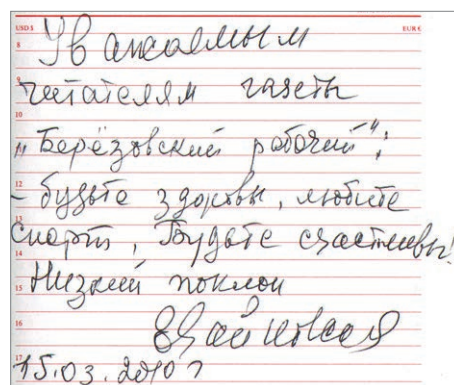 USD $ EUR €
8 Уважаемым
9 читателям газеты
10
11 „Берёзовский рабочий“:
12 - будьте здоровы, любите
13 спорт, Будьте счастливы!
14
15 Низкий поклон
17 15.03.2010 г